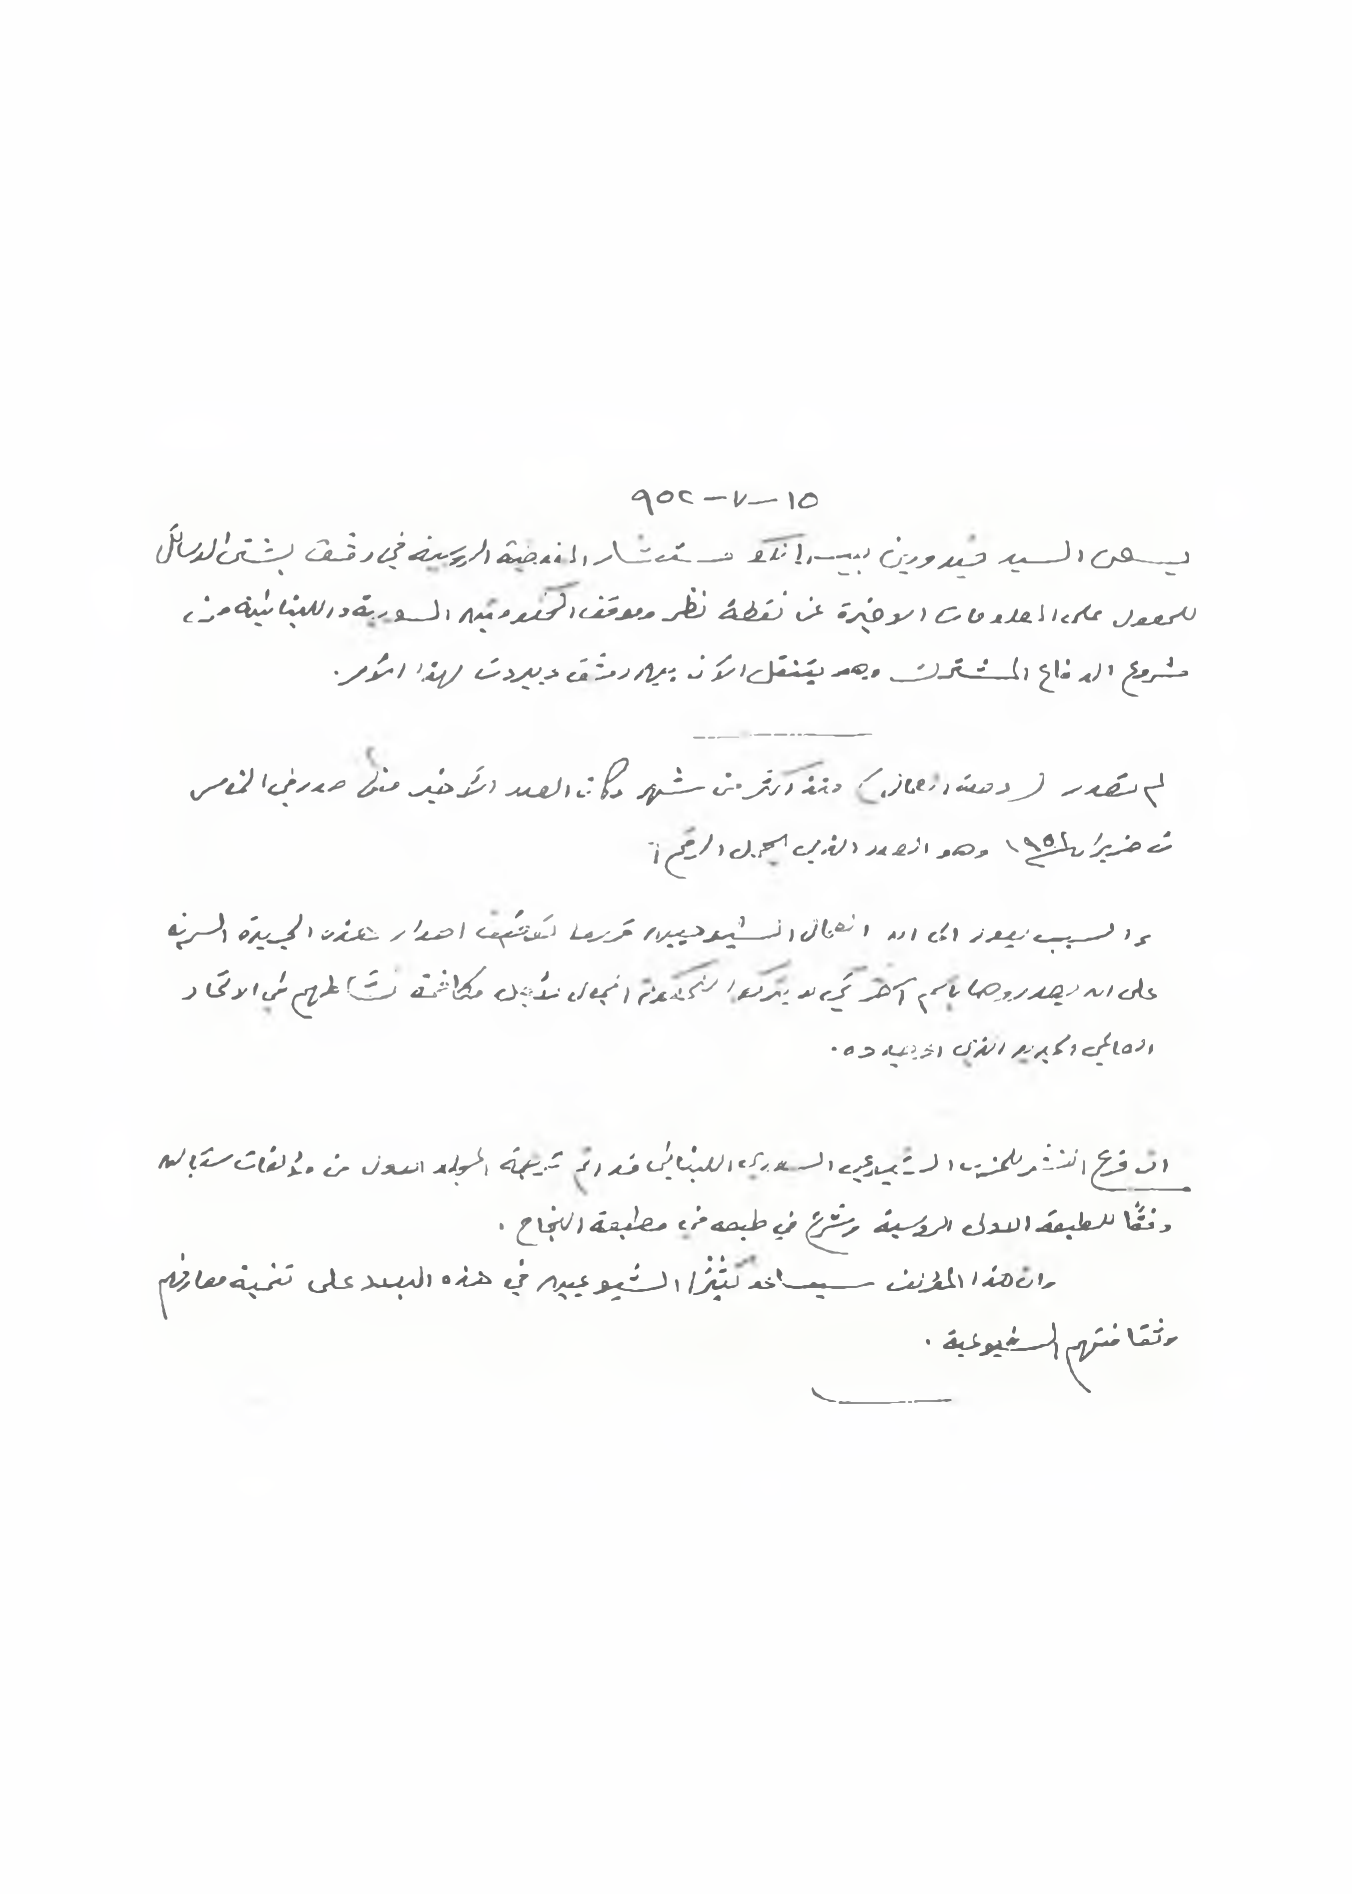 ١٥-٧-٩٥٢
يسعى السيد فيدورين مستشار المفوضية الروسية في دمشق بشتى الوسائل
للحصول على المعلومات الاخيرة عن نقطة نظر وموقف الحكومتين السورية واللبنانية من
مشروع الدفاع المشترك وهو يتنقل الآن بين دمشق وبيروت لهذا الأمر.
لم تصدر ( ) منذ اكثر من شهر وكان العدد الأخير منها صدر في الخامس
من حزيران ١٩٥٢ وهو العدد الذي يحمل الرقم
والسبب يعود الى ان العمال الشيوعيين قرروا توقيف اصدار هذه الجريدة السرية
على ان يصدروها باسم آخر كي لا يتركوا للحكومة المجال لأجل مكافحة نشاطهم في الاتحاد
العمالي الجديد الذي اوجدوه.
ان فرع النشر للحزب الشيوعي السوري اللبناني قد اتم ترجمة المجلد الاول من مؤلفات ستالين
وفقًا للطبعة الاولى الروسية وشرع في طبعه في مطبعة النجاح.
وان هذا المؤلف سيساعد كثيرًا الشيوعيين في هذه البلاد على تنمية معارفهم
وثقافتهم الشيوعية.